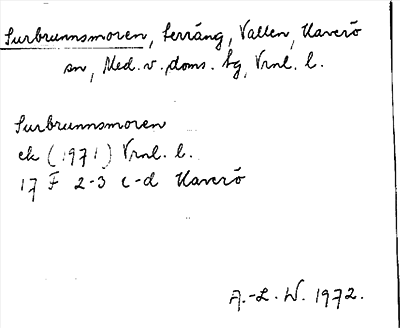 Surbrunnsmoren, Serräng, Vallen, Haverö
sn, Med. v. doms. tg, Vrnl. l.
Surbrunnsmoren
ek (1971) Vrnl. l.
17 F 2-3 c-d Haverö
A.-L. W. 1972.